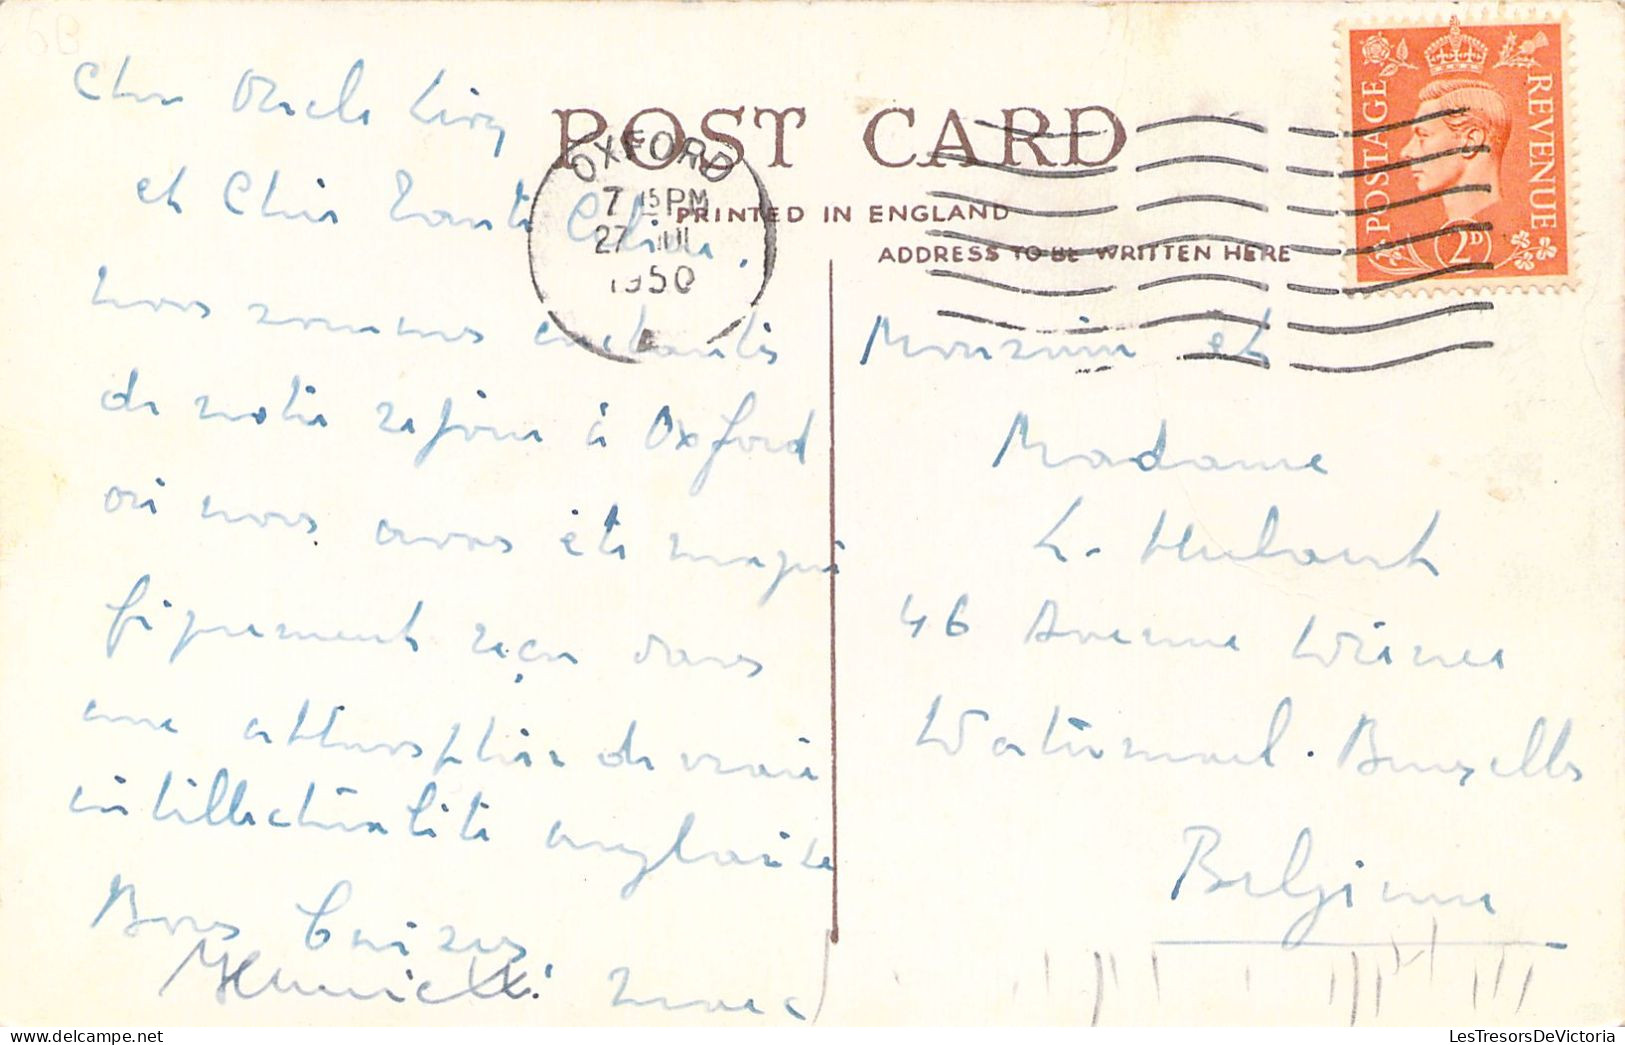 Cher Oncle
et Chère Tante Céline.
nous sommes enchantés
de notre séjour à Oxford
où nous avons été magni
fiquement reçu dans
une atmosphère de vraie
intellectualité anglaise
Bons Baisers
POST CARD
PRINTED IN ENGLAND
ADDRESS TO BE WRITTEN HERE
OXFORD
7 15 PM
27 JUL
1950
POSTAGE
REVENUE
2D
Monsieur et
Madame
L. Hulaut
46 Avenue
Watermael. Bruxelles
Belgium
LesTresorsDeVictoria.com